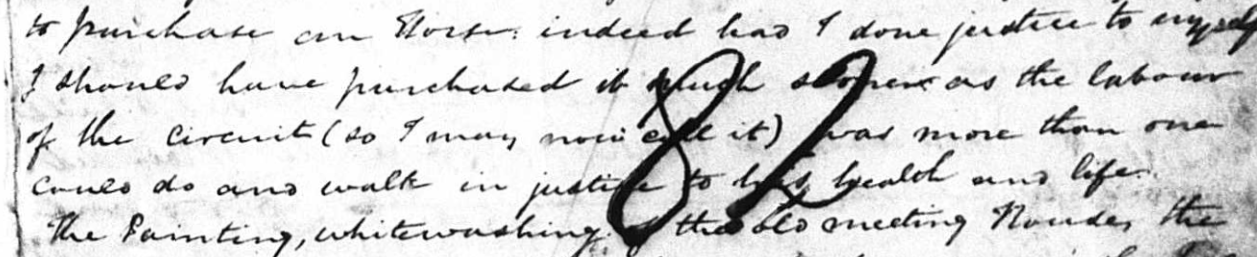 to purchase an Horse: indeed had I done justice to myself
I should have purchased it much sooner as the labour
of the Circuit (so I may now call it) was more than one
could do and walk in justice to his health and life.
The Painting, whitewashing of the old meeting Houses, the
82